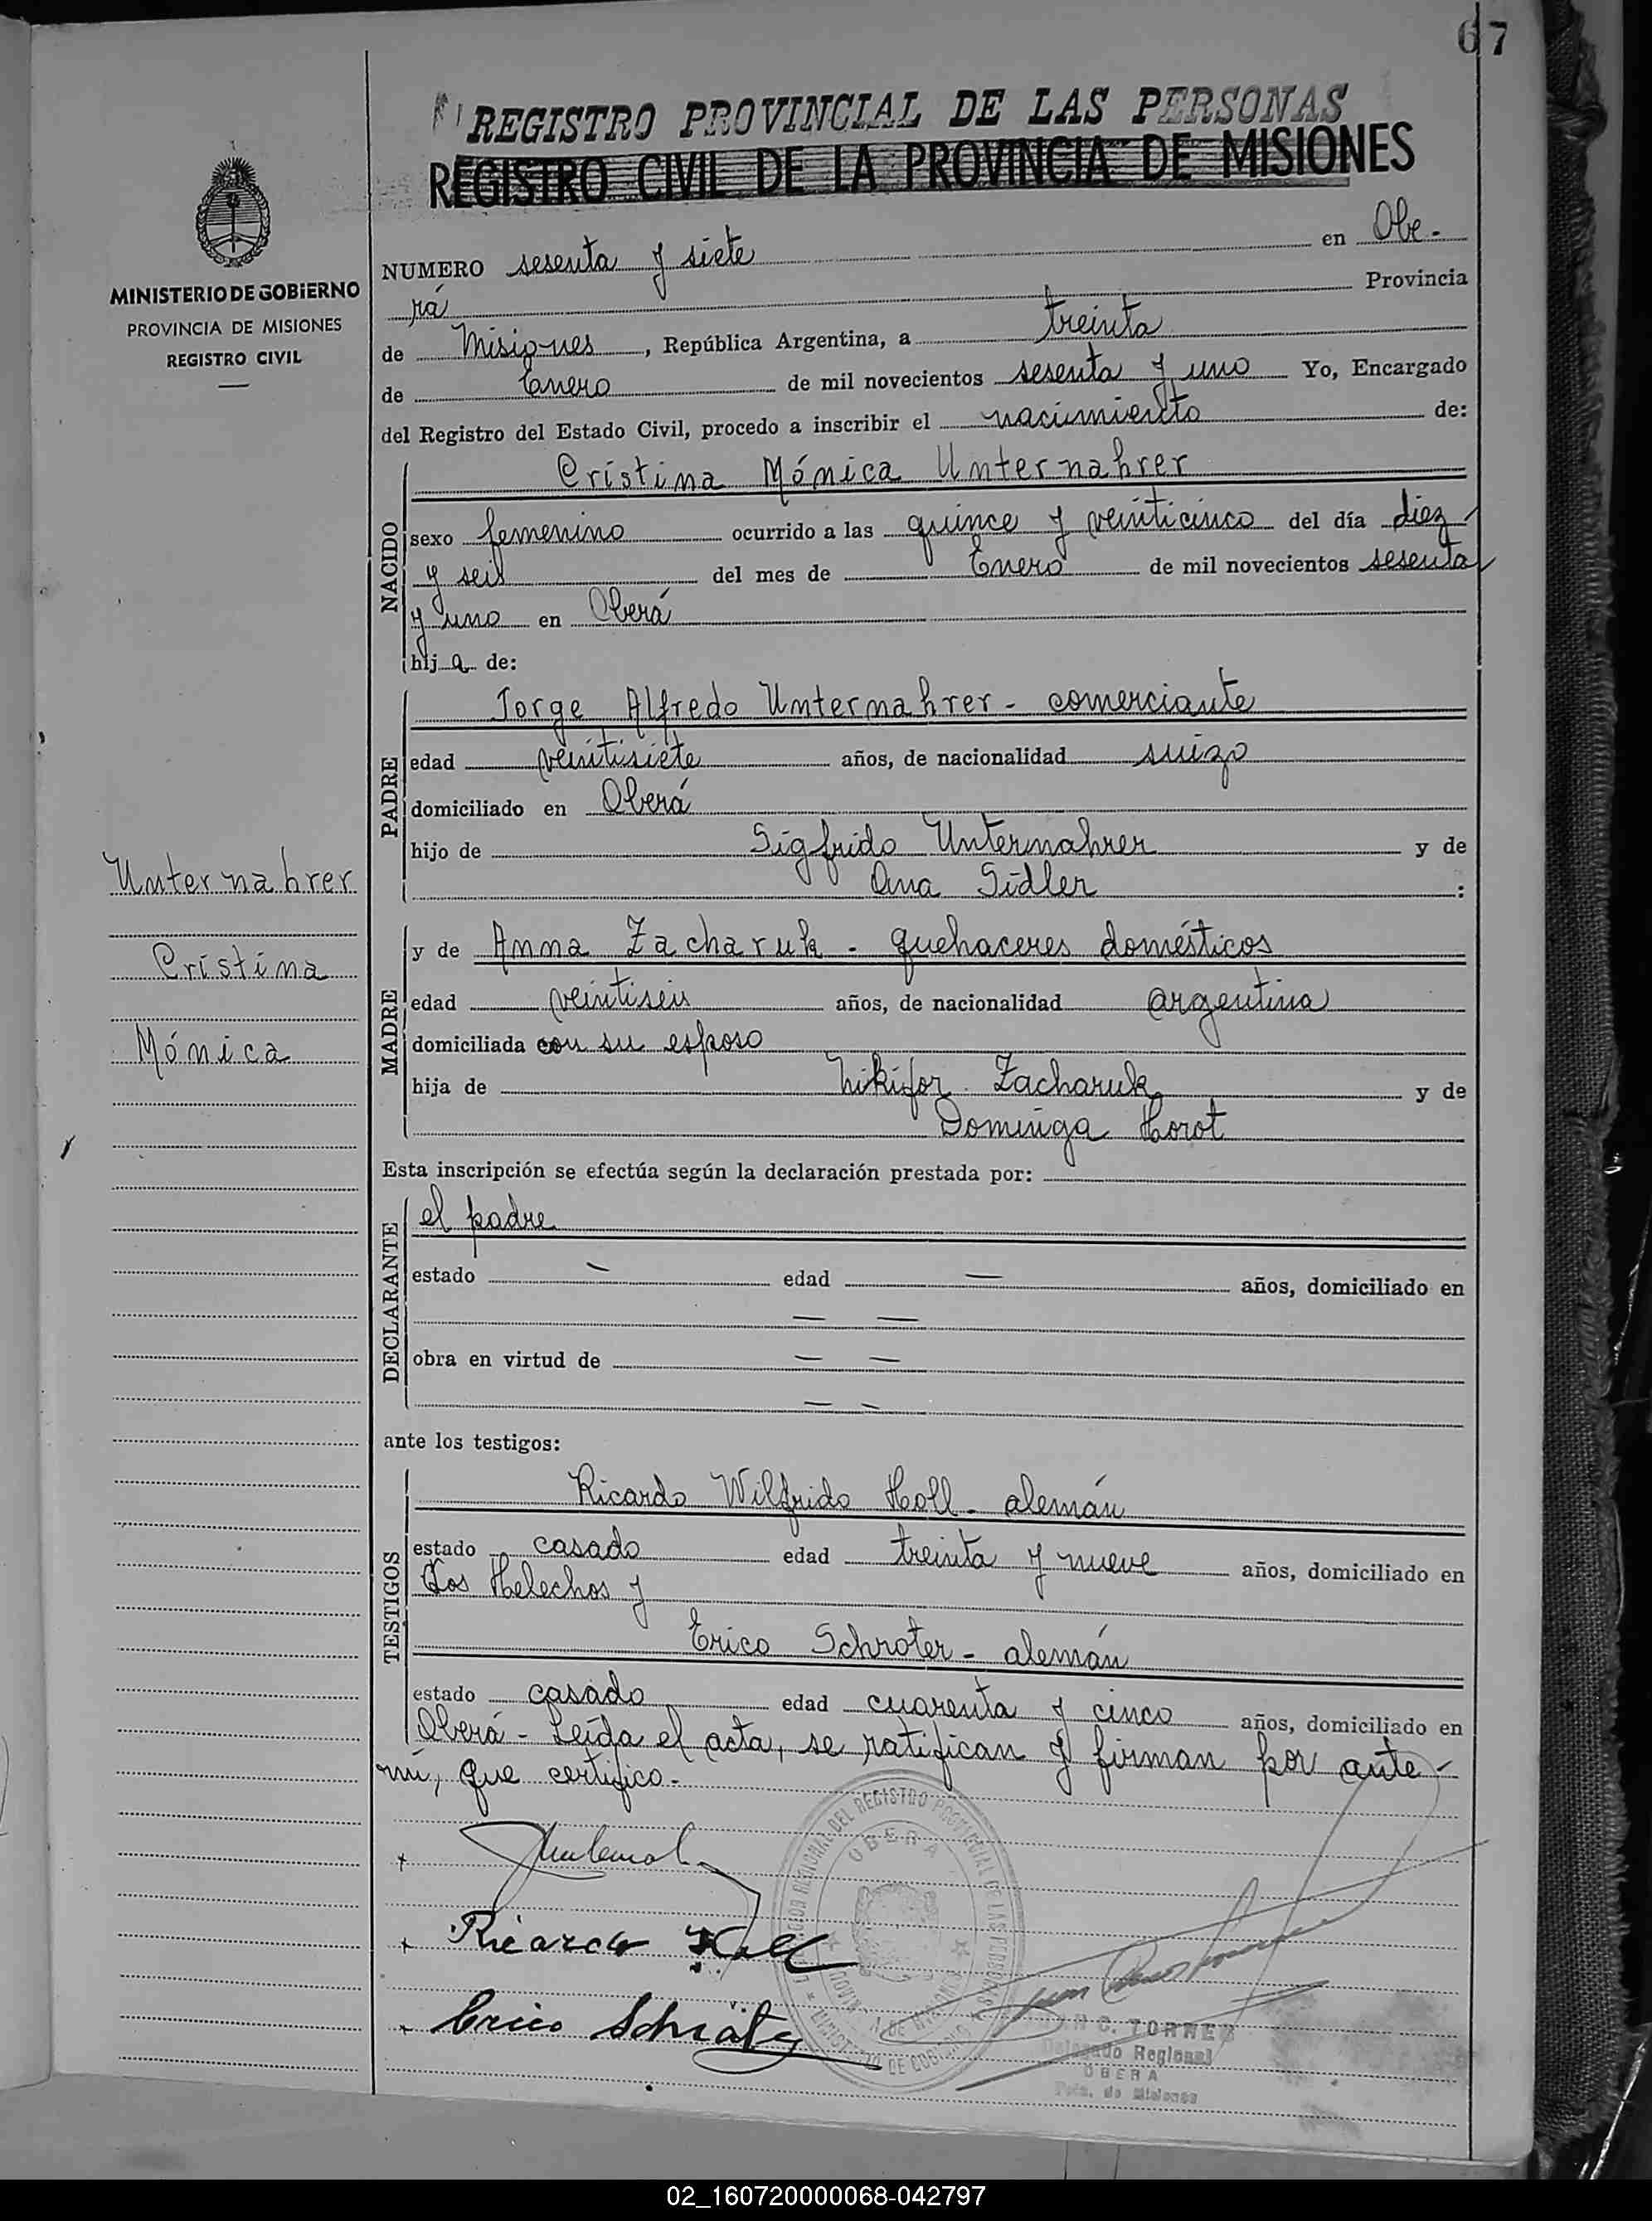 67
REGISTRO PROVINCIAL DE LAS PERSONAS
REGISTRO CIVIL DE LA PROVINCIA DE MISIONES
MINISTERIO DE GOBIERNO
PROVINCIA DE MISIONES
REGISTRO CIVIL
NUMERO sesenta y siete en Obe-
rá Provincia
de Misiones, República Argentina, a treinta
de Enero de mil novecientos sesenta y uno Yo, Encargado
del Registro del Estado Civil, procedo a inscribir el nacimiento de:
NACIDO
Cristina Mónica Unternahrer
sexo femenino ocurrido a las quince y veinticinco del día diez
y seis del mes de Enero de mil novecientos sesenta
y uno en Oberá
hija de:
PADRE
Jorge Alfredo Unternahrer - comerciante
edad veintisiete años, de nacionalidad suizo
domiciliado en Oberá
hijo de Sigfrido Unternahrer y de
Ana Sidler :
Unternahrer
Cristina
Mónica
MADRE
y de Anna Zacharuk - quehaceres domésticos
edad veintiseis años, de nacionalidad argentina
domiciliada con su esposo
hija de Nikifor Zacharuk y de
Dominga Horot
Esta inscripción se efectúa según la declaración prestada por:
DECLARANTE
el padre
estado — edad — años, domiciliado en
— —
obra en virtud de — —
— -
ante los testigos:
TESTIGOS
Ricardo Wilfrido Holl - alemán
estado casado edad treinta y nueve años, domiciliado en
Los Helechos y
Erico Schroter - alemán
estado casado edad cuarenta y cinco años, domiciliado en
Oberá - Leída el acta, se ratifican y firman por ante
mí, que certifico.-
Ricardo Holl
Erico Schröter
OBERA
C. TORRES
Delegado Regional
OBERA
Pcia. de Misiones
02_160720000068-042797